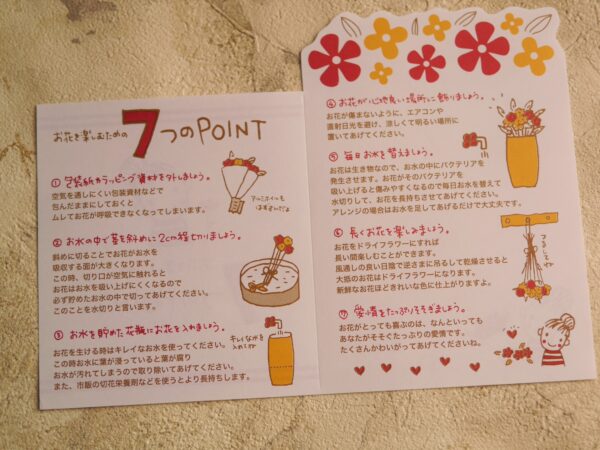 お花を楽しむための7つのPOINT
① 包装紙やラッピング資材を外しましょう。
空気を通しにくい包装資材などで
包んだままにしておくと
ムレてお花が呼吸できなくなってしまいます。
アルミホイルも
はずすんだよ
② お水の中で茎を斜めに2cm程切りましょう。
斜めに切ることでお花がお水を
吸収する面が大きくなります。
この時、切り口が空気に触れると
お花はお水を吸い上げにくくなるので
必ず貯めたお水の中で切ってあげてください。
このことを水切りと言います。
③ お水を貯めた花瓶にお花を入れましょう。
お花を生ける時はキレイなお水を使ってください。
この時お水に葉が浸っていると葉が腐り
お水が汚れてしまうので取り除いてあげてください。
また、市販の切花栄養剤などを使うとより長持ちします。
キレイな水を
入れてね
④ お花が心地良い場所に飾りましょう。
お花が傷まないように、エアコンや
直射日光を避け、涼しくて明るい場所に
置いてあげてください。
⑤ 毎日お水を替えましょう。
お花は生き物なので、お水の中にバクテリアを
発生させます。お花がそのバクテリアを
吸い上げると傷みやすくなるので毎日お水を替えて
水切りして、お花を長持ちさせてあげてください。
アレンジの場合はお水を足してあげるだけで大丈夫です。
⑥ 長くお花を楽しみましょう。
お花をドライフラワーにすれば
長い間楽しむことができます。
風通しの良い日陰で逆さまに吊るして乾燥させると
大抵のお花はドライフラワーになります。
新鮮なお花ほどきれいな色に仕上がりますよ。
つるしてね
⑦ 愛情をたっぷりそそぎましょう。
お花がとっても喜ぶのは、なんといっても
あなたがそそぐたっぷりの愛情です。
たくさんかわいがってあげてくださいね。